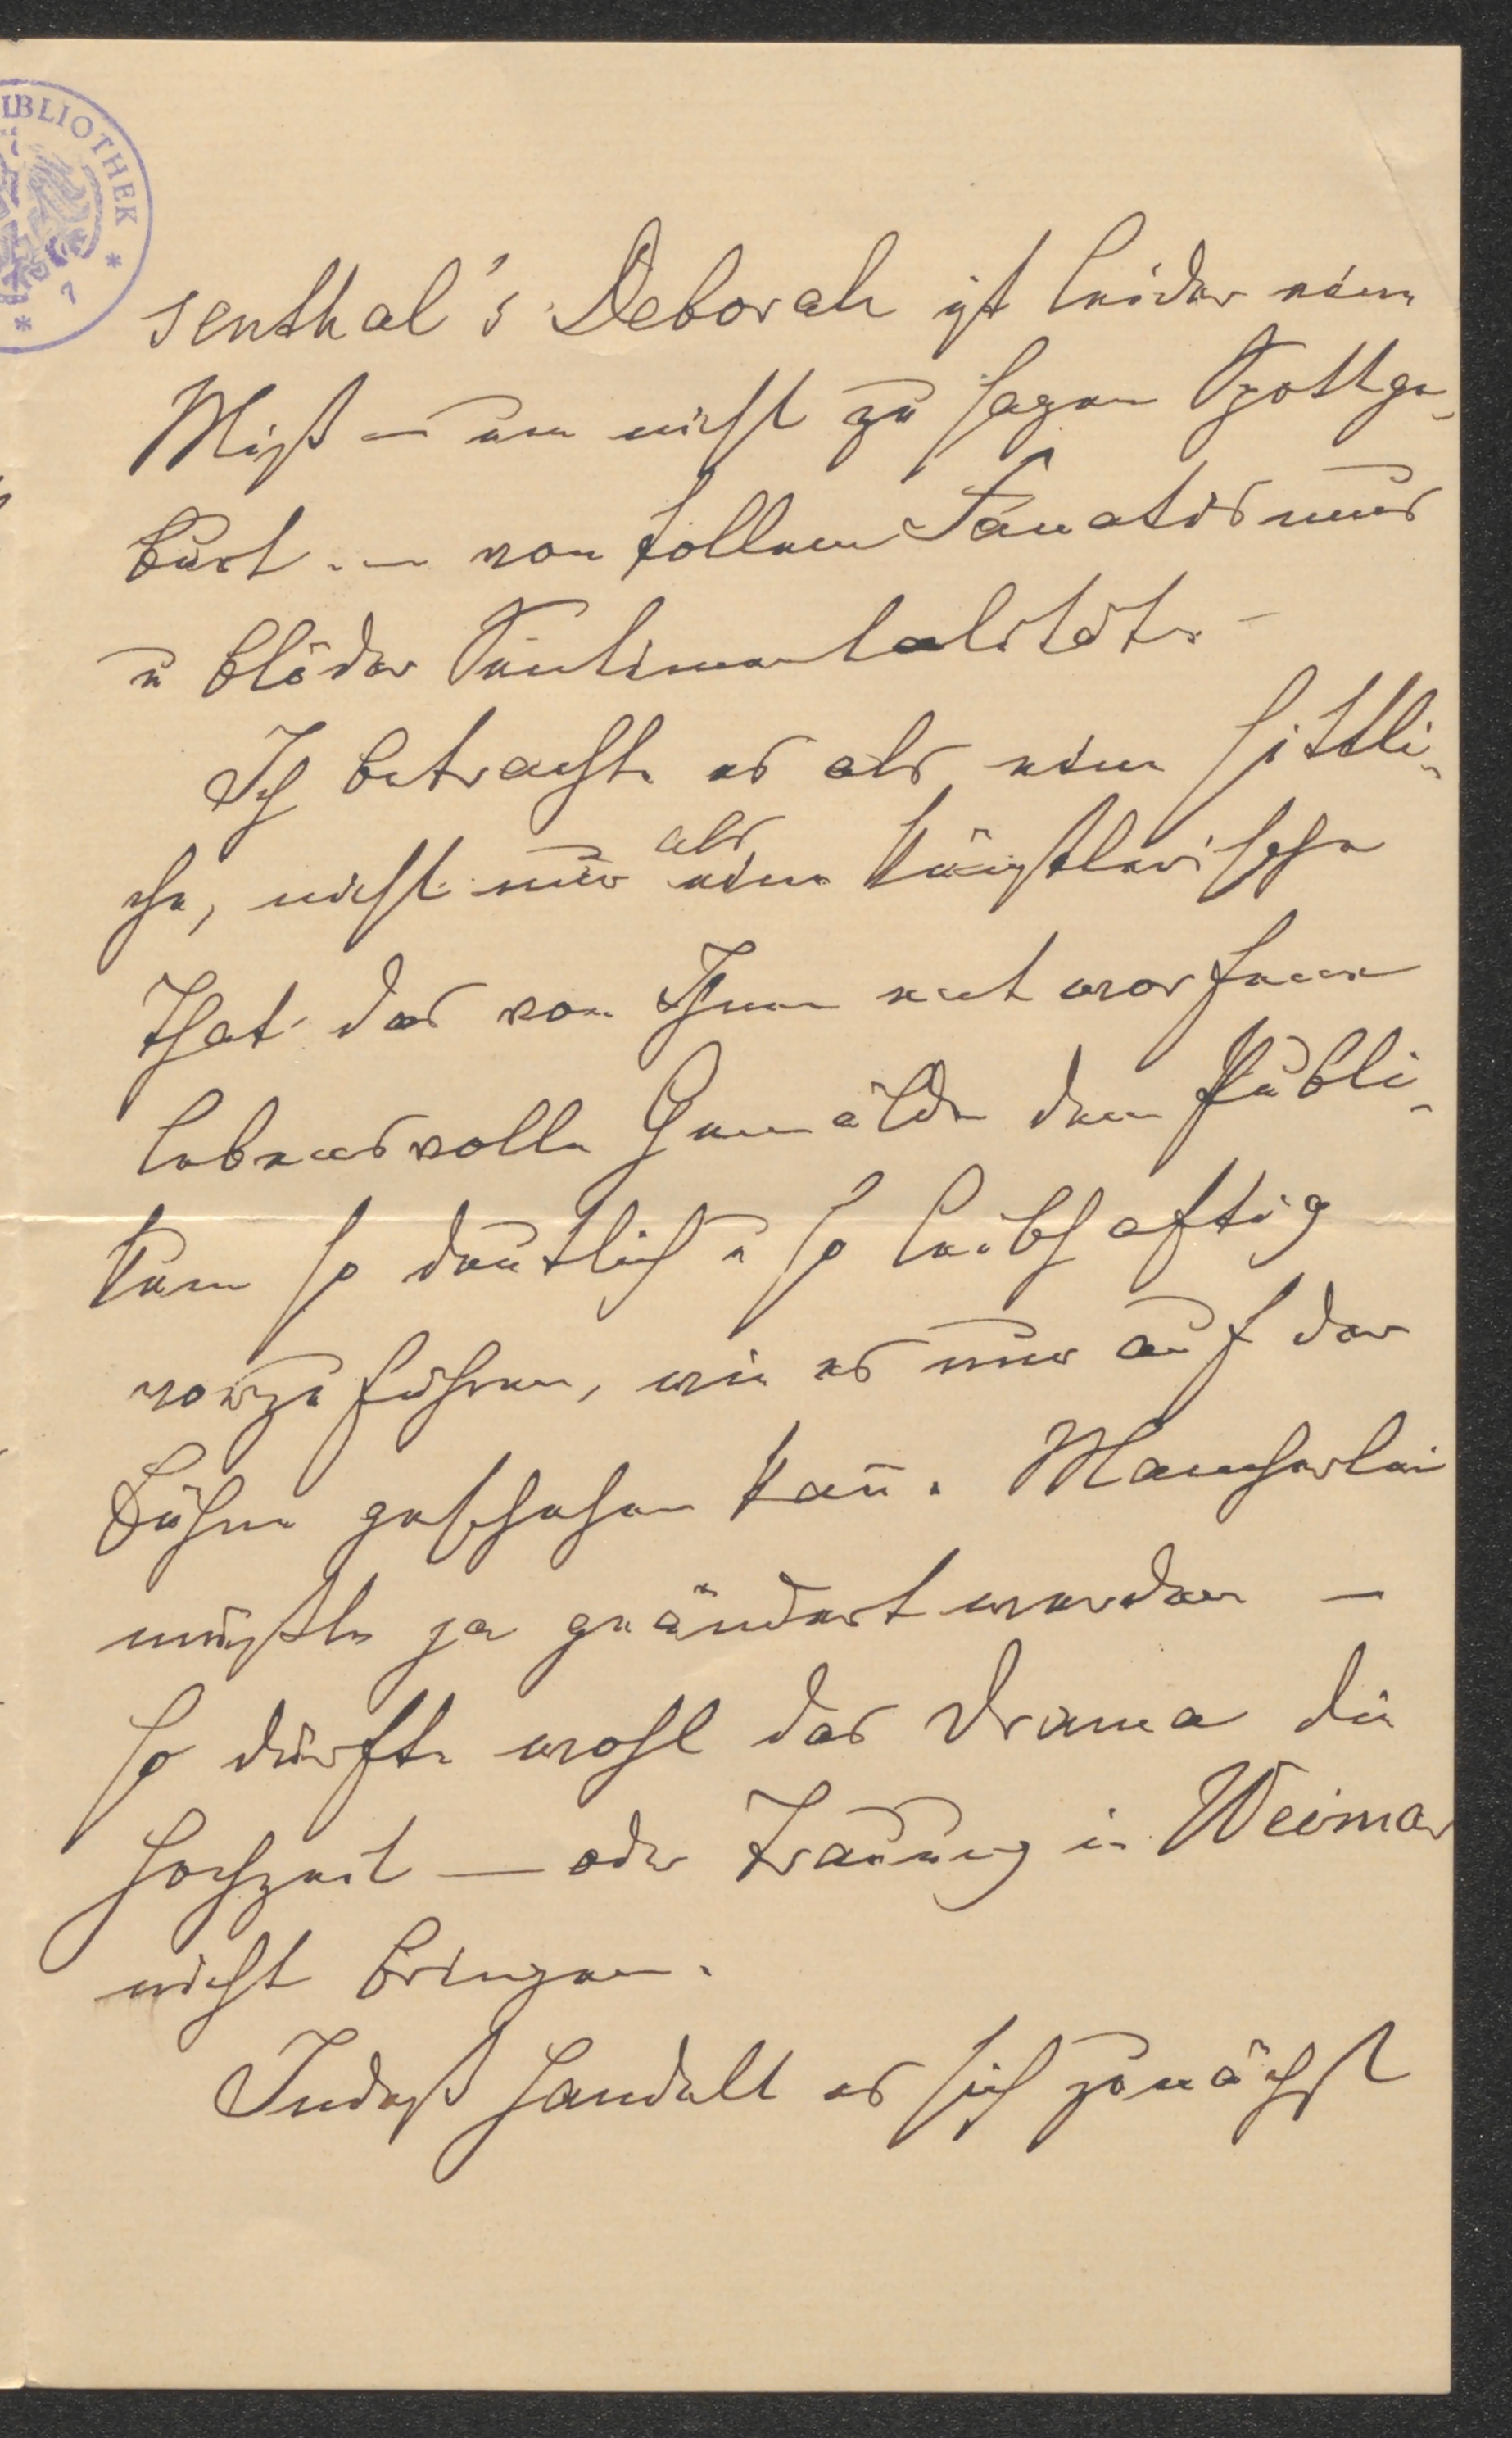 IBLIOTHEK
senthal's Deborah ist leider eine
Miß — um nicht zu sagen Spottge-
burt — von tollem Fanatismus
u blöder Sentimentalität. –
Ich betrachte es als eine sittli-
che, nicht nur als eine künstlerische
That das von Ihnen entworfene
lebensvolle Gemälde dem Publi-
kum so deutlich u so leibhaftig
vorzuführen, wie es nur auf der
Bühne geschehen kann̄. Mancherlei
müßte ja geändert werden —
so dürfte wohl das Drama die
Hochzeit — oder Trauung in Weimar
nicht bringen.
Indeß handelt es sich zunächst